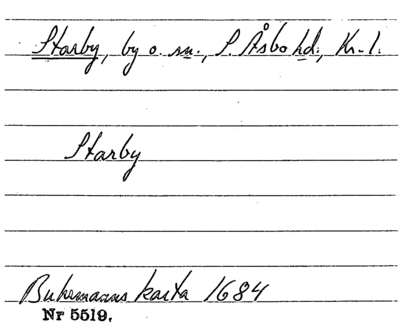 Starby, by o. sn., S. Åsbo hd., Kr. l.
Starby
Buhrmanns karta 1684
Nr 5519.